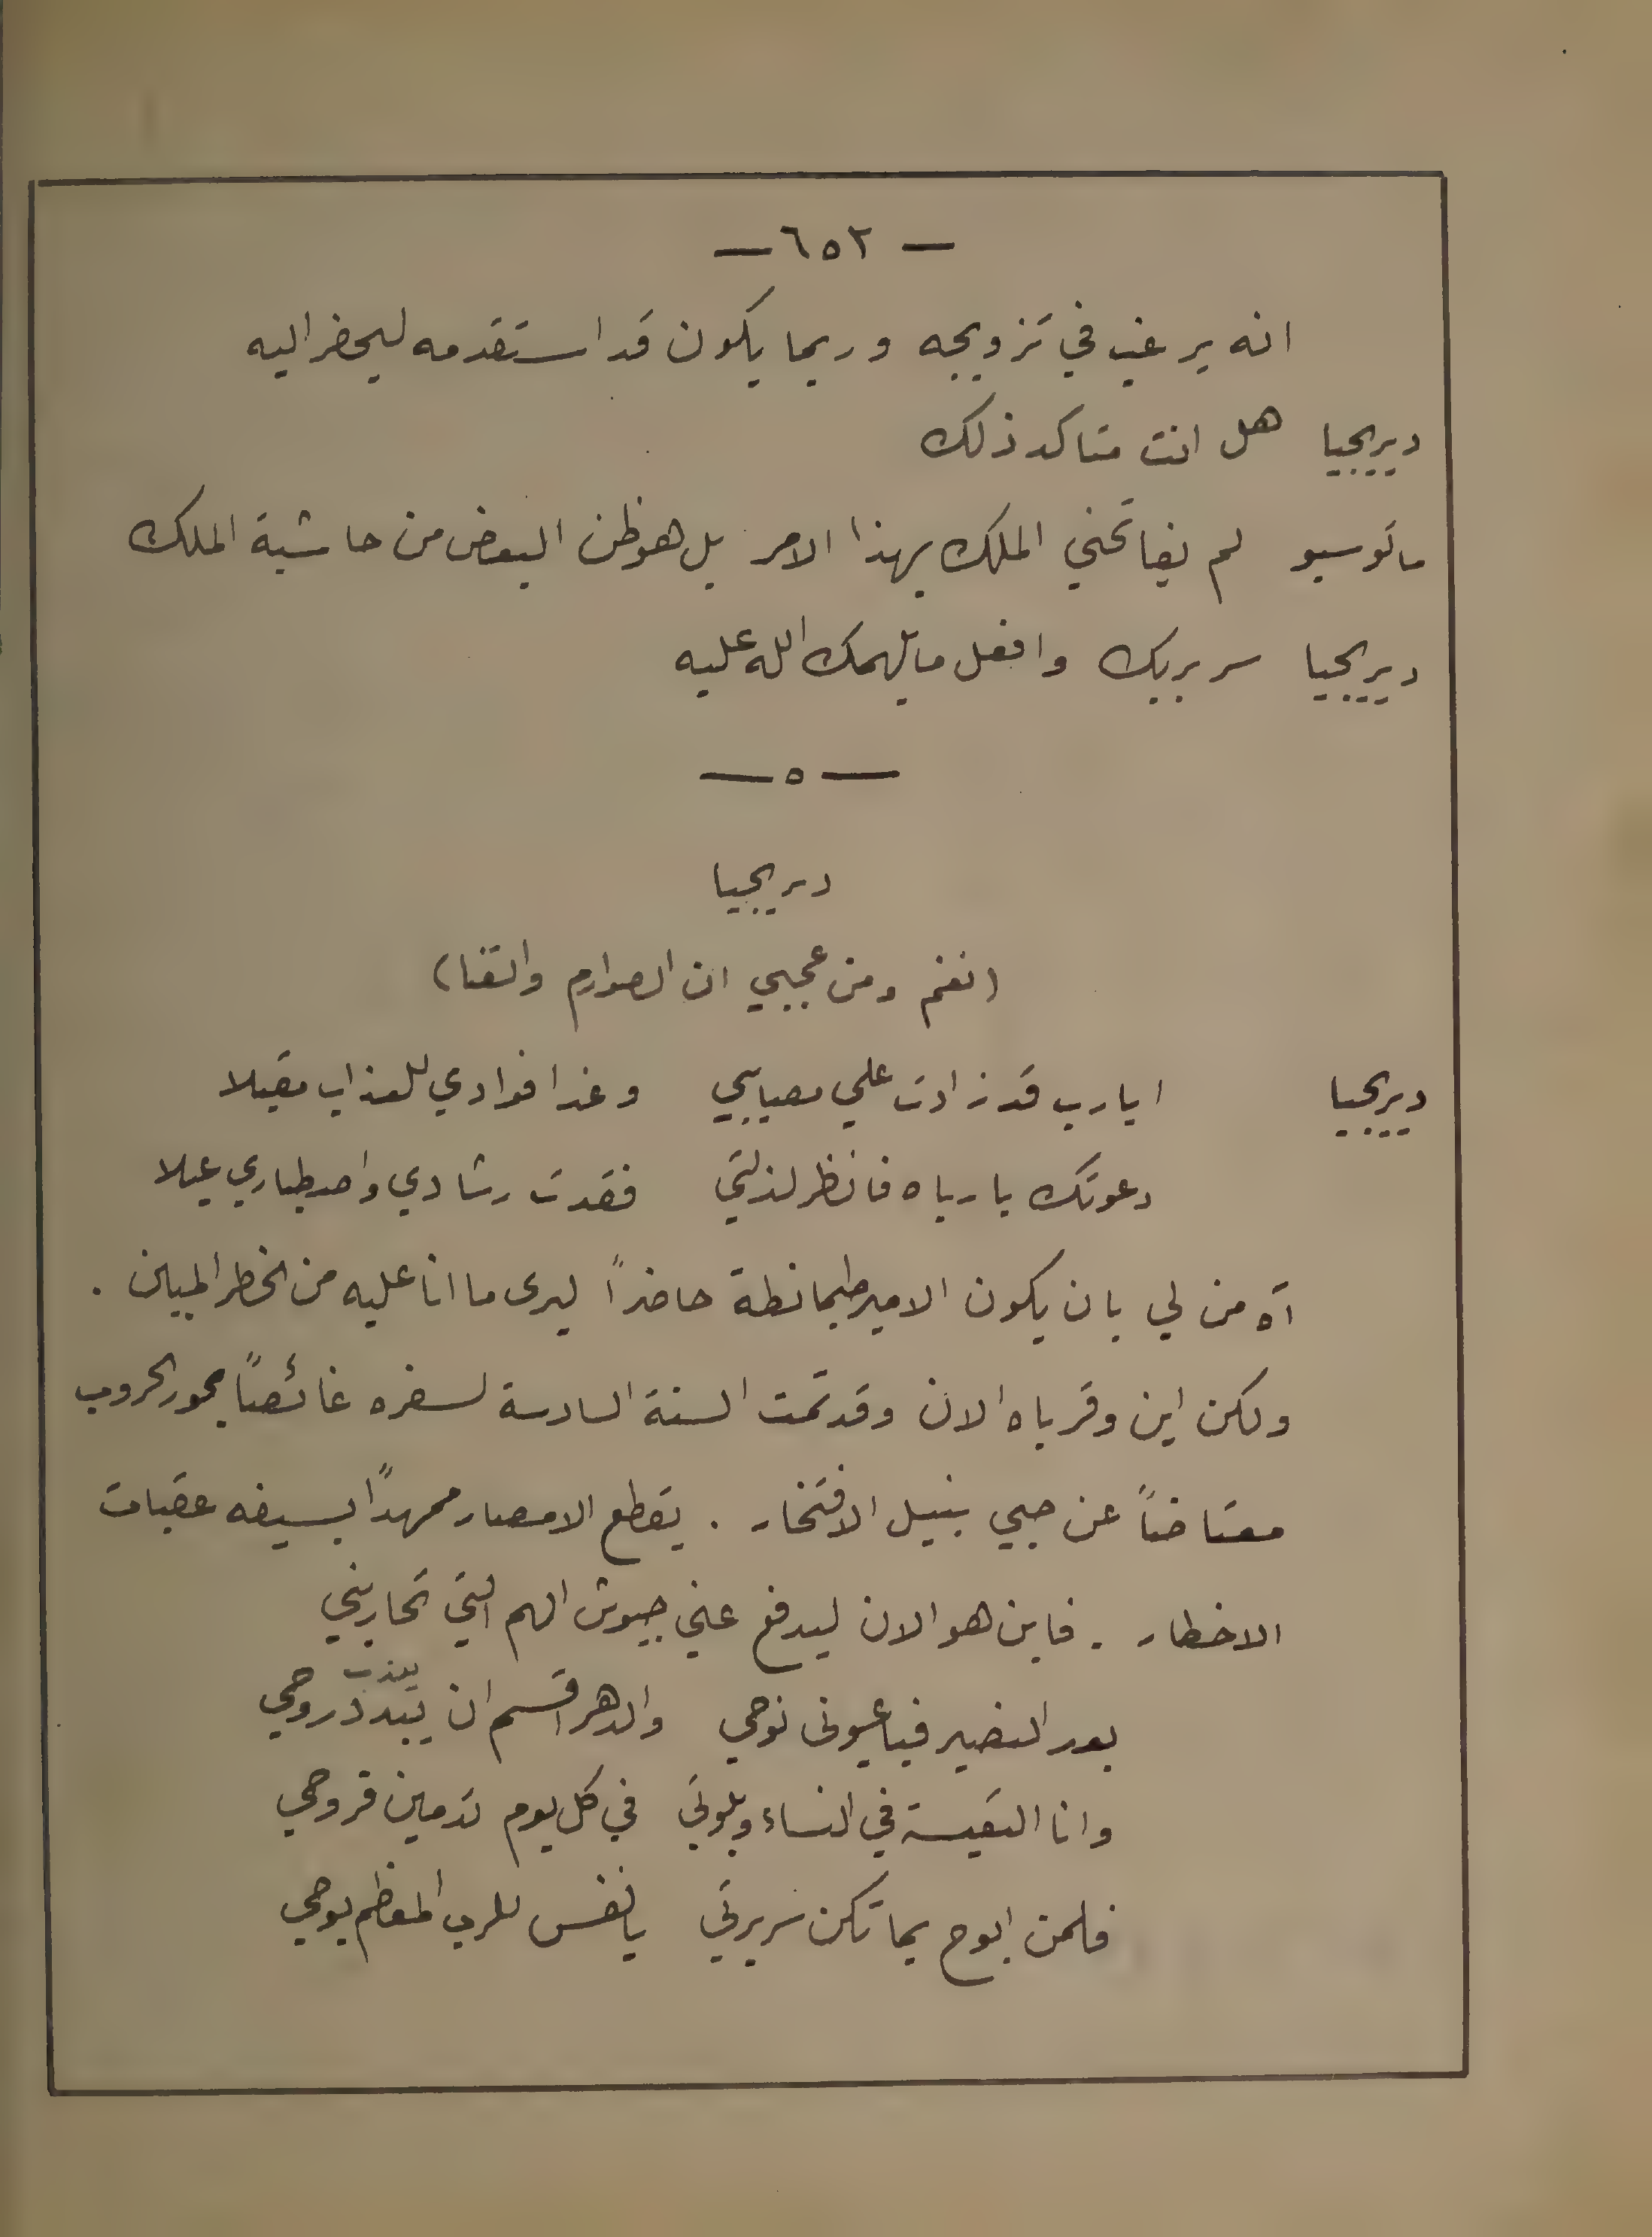 — ٦٥٢ —
انه يرغب في تزويجه وربما يكون قد استقدمه ليحضر اليه
ديريجيا هل انت متاكد ذلك
ماتوسيو لم يفاتحني الملك بهذا الامر بل هو ظن البعض من حاشية الملك
ديريجيا سر بربك وافعل ما يلهمك الله عليه
— ٥ —
ديريجيا
(نغم ومن عجبي ان الصوارم والقنا)
ديريجيا ايا رب قد زادت علي مصايبي وغدا فوادي للعذاب مقيلا
دعوتك يا رباه فانظر لذلتي فقدت رشادي واصطباري عيلا
آه من لي بان يكون الامير حاضراً ليرى ما انا عليه من الخطر المبين .
ولكن اين وقرباه الان وقد تمت السنة السادسة لسفره غائصاً بحور الحروب
معتاضاً عن حبي بنيل الافتخار . يقطع الامصار ممهداً بسيفه عقبات
الاخطار . فاين هو الان ليدفع عني جيوش الهم التي تحاربني
بعد النصير فيا عيوني نوحي والدهر اقسم ان يبدد روحي
يعذب
وانا التعيسة في النساء وبلوتي في كل يوم تدمين قروحي
فلمن ابوح بما تكن سريرتي يا نفس للرب المعظم بوحي